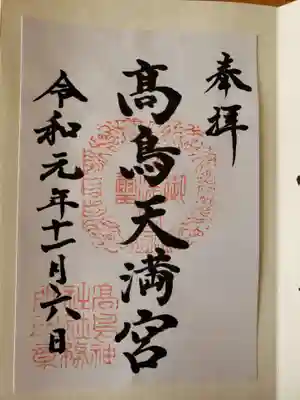 奉拝
髙鳥天満宮
令和元年十一月六日